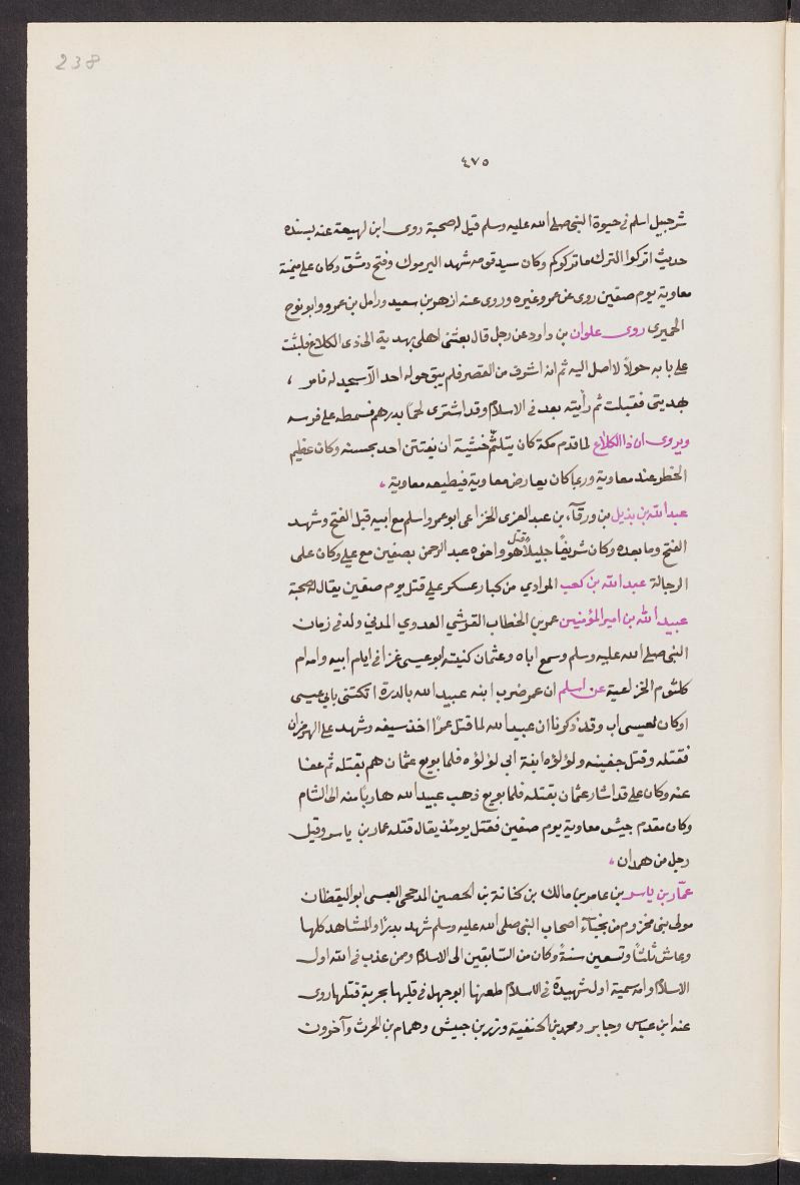 238
٤٧٥
شرحبيل اسلم في حيوة النبى صلى الله عليه وسلم قيل له صحبة روى ابن لهيعة عنه بسنده
حديث اتركوا الترك ما تركوكم وكان سيد قومه شهد اليرموك وفتح دمشق وكان على ميمنة
معاوية يوم صفين روى عن عمر وغيره وروى عنه ازهر بن سعيد وزامل بن عمرو وابو نوح
الحميرى روى علوان بن داود عن رجل قال بعثنى اهلى بهدية الى ذى الكلاع فلبثت
على بابه حولاً لا اصل اليه ثم انه اشرف من القصر فلم يبق حوله احد الا سجد له فامر ،
بهديتى فقبلت ثم رأيته بعد في الاسلام وقد اشترى لحمًا بدرهم فسمطه على فرسه
ويروى ان ذا الكلاع لما قدم مكة كان يتلثم خشية ان يفتتن احد بحسنه وكان عظيم
الخطر عند معاوية وربما كان يعارض معاوية فيطيعه معاوية ،
عبد الله بن بذيل بن ورقآء بن عبد العزى الخزاعى ابو عمرو اسلم مع ابيه قبل الفتح وشهد
الفتح وما بعده وكان شريفًا جليلاً قتل هو واخوه عبد الرحمن بصفين مع على وكان على
الرجالة عبد الله بن كعب المرادي من كبار عسكر على قتل يوم صفين يقال له صحبة
عبيد الله بن امير المؤمنين عمر بن الخطاب القرشي العدوي المدني ولد في زمان
النبى صلى الله عليه وسلم وسمع اباه وعثمان كنيته ابو عيسى غزا في ايام ابيه وامه ام
كلثوم الخزاعية عن اسلم ان عمر ضرب ابنه عبيد الله بالدرة اتكتنى بابي عيسى
او كان لعيسى اب وقد ذكرنا ان عبيد الله لما قتل عمر اخذ سيفه وشهد على الهرمزان
فقتله وقتل جفينه ولؤلؤه ابنة ابي لؤلؤه فلما بويع عثمان هم بقتله ثم عفا
عنه وكان على قد اشار عثمان بقتله فلما بويع ذهب عبيد الله هاربًا منه الى الشام
وكان مقدم جيش معاوية يوم صفين فقتل يومئذ يقال قتله عمار بن ياسر وقيل
رجل من همدان ،
عمّار بن ياسر بن عامر بن مالك بن كنانة بن الحصين المدحجى العبسى ابو اليقظان
مولى بنى مخزوم من نجبآء اصحاب النبى صلى الله عليه وسلم شهد بدرًا والمشاهد كلها
وعاش ثلثًا وتسعين سنةً وكان من السّابقين الى الاسلام وممن عذب في الله اول
الاسلام وامه سمية اول شهيدة في الاسلام طعنها ابو جهل في قلبها بحربة قتلها روى
عنه ابن عباس وجابر ومحمد بن الحنفية وزر بن جيش وهمام بن الحرث وآخرون